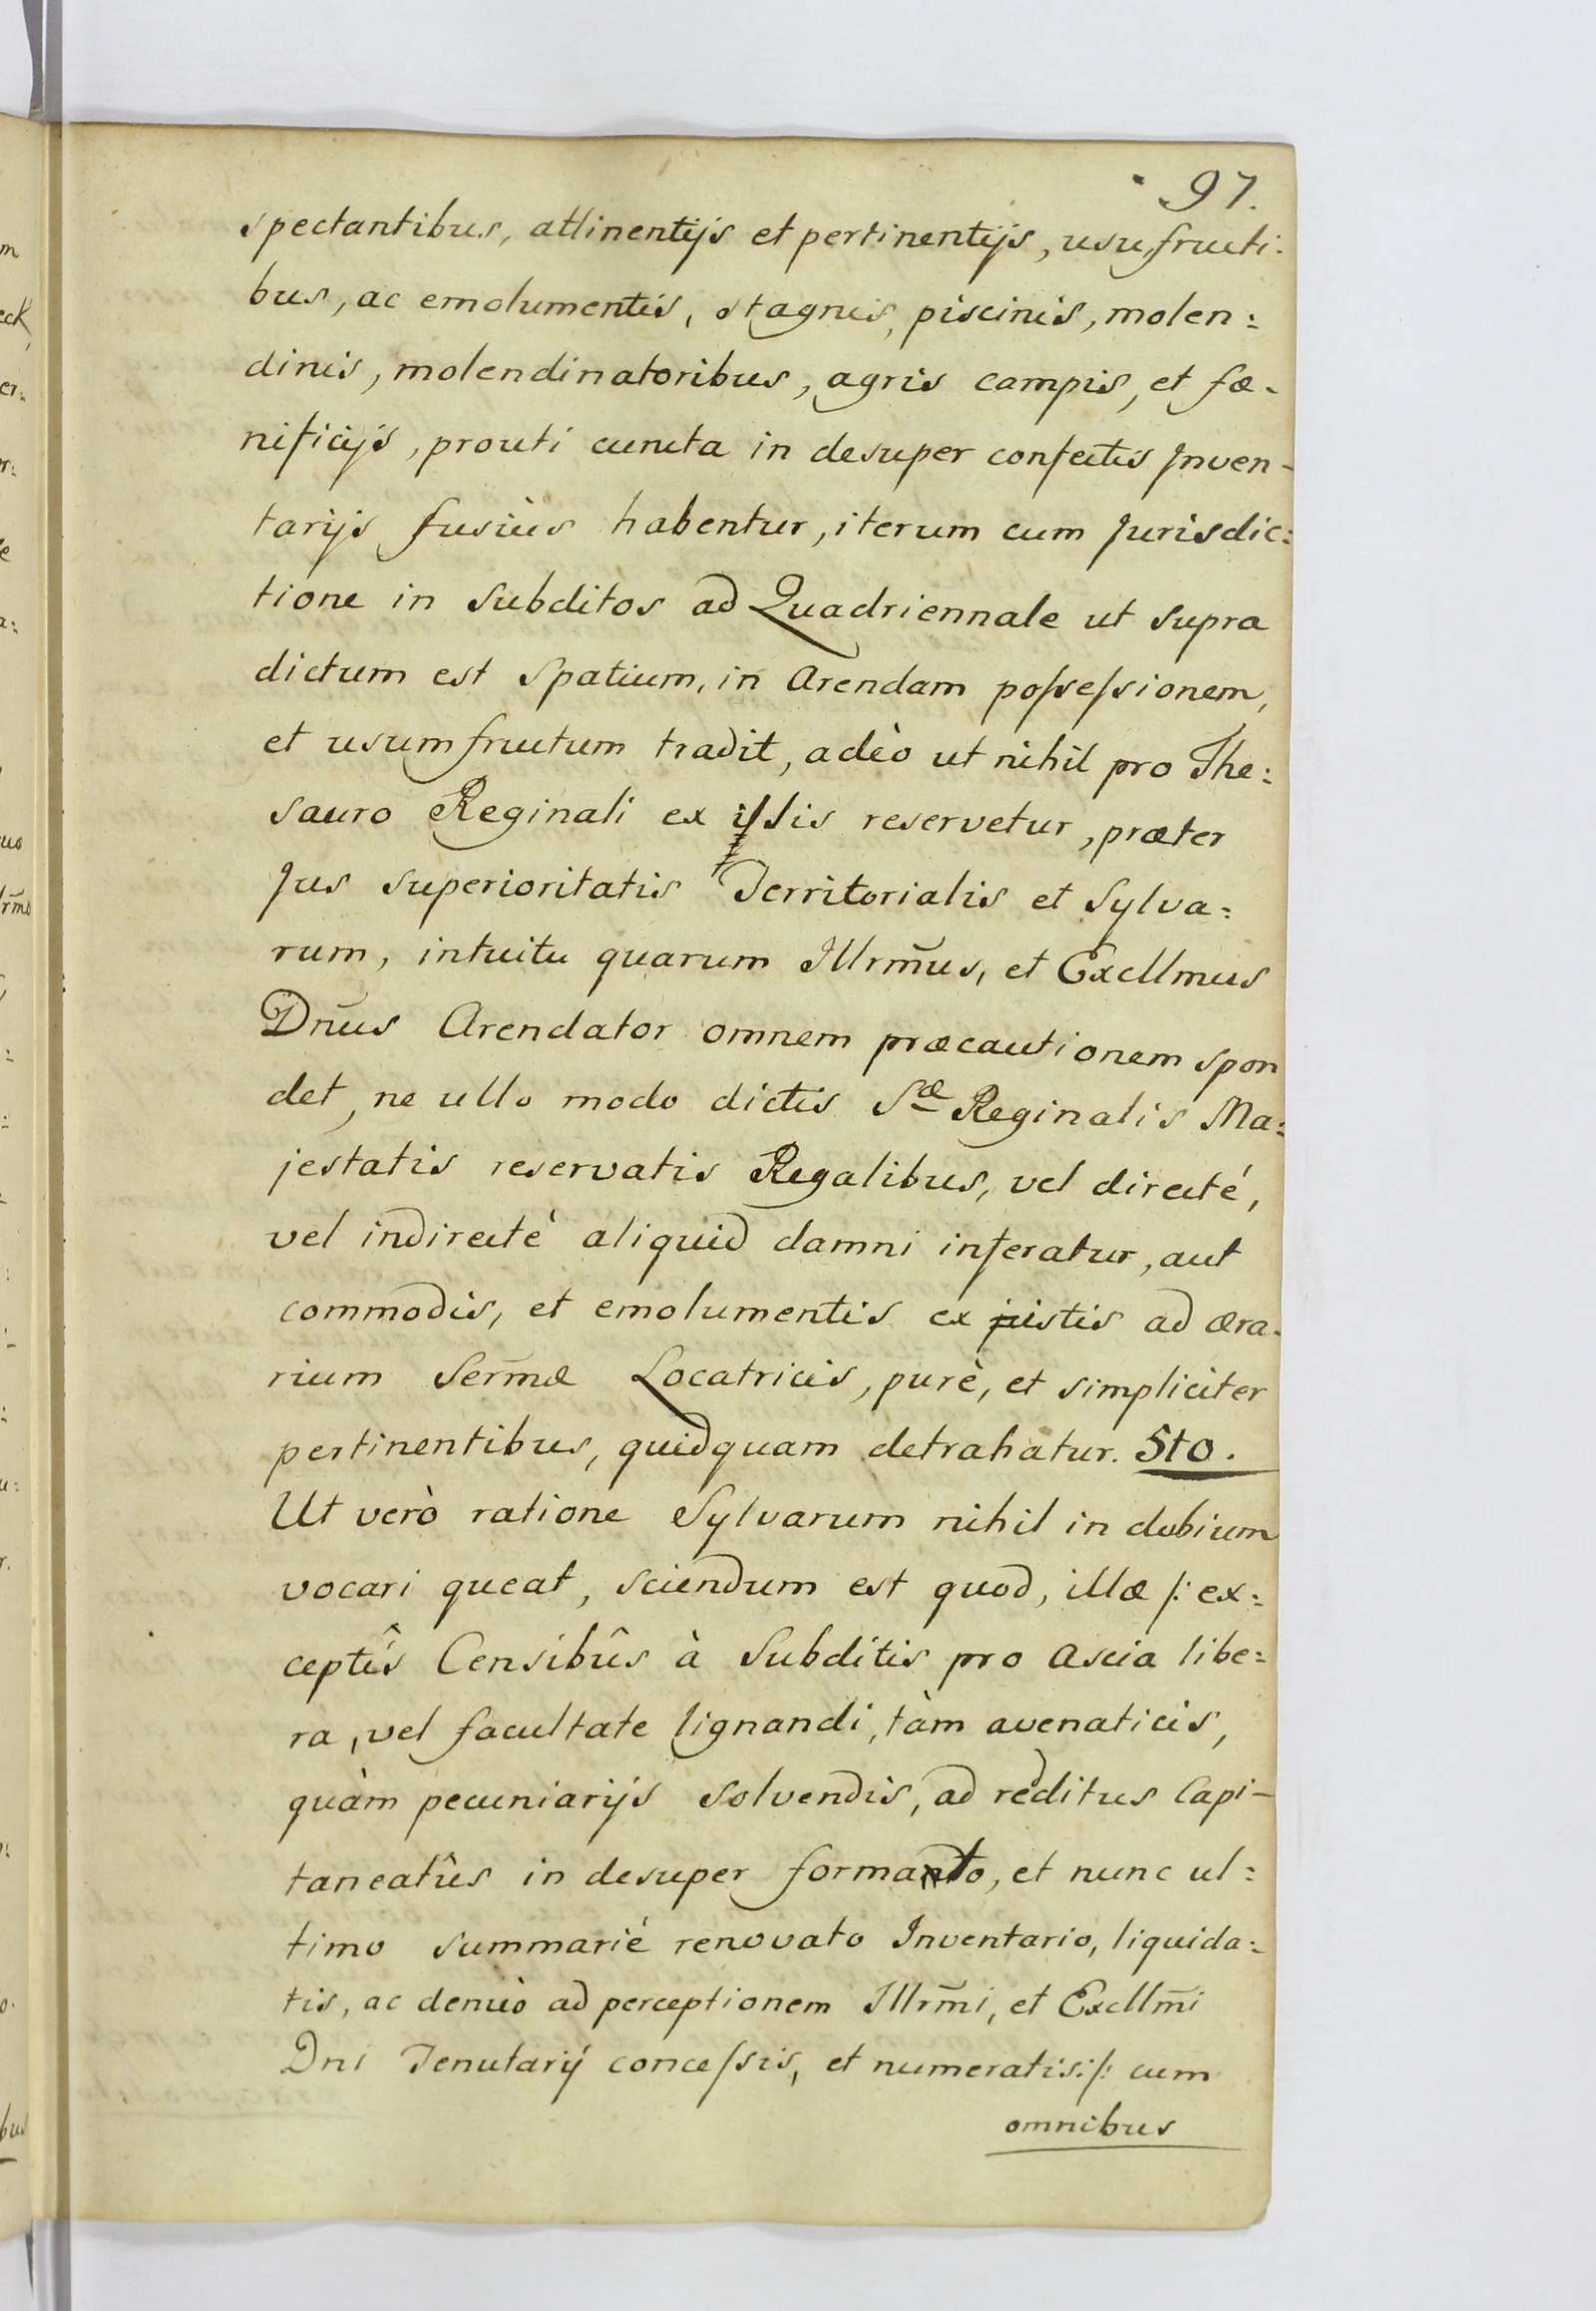 97.
spectantibus, attinentijs et pertinentijs, usufructi:
bus, ac emolumentis, stagnis, piscinis, molen:
dinis, molendinatoribus, agris campis, et fæ-
nificijs, prouti cuncta in desuper confectis Inven-
tarijs fusiùs habentur, iterum cum Jurisdic:
tione in Subditos ad Quadriennale ut supra
dictum est Spatium, in Arendam possessionem,
et usumfructum tradit, adèo ut nihil pro The:
sauro Reginali ex istis reservetur, præter
Jus superioritatis Territorialis et Sylva:
rum, intuitu quarum Illrm̄us, et Excllmus
Dn̄us Arendator omnem præcautionem spon
det, ne ullo modo dictis Sæ Reginalis Ma:
jestatis reservatis Regalibus, vel directé,
vel indirectè aliquid damni inferatur, aut
commodis, et emolumentis ex istis ad æra-
rium Serm̄æ Locatricis, purè, et simpliciter
pertinentibus, quidquam detrahatur. 5to.
Ut verò ratione Sylvarum nihil in dubium
vocari queat, sciendum est quod, illæ /: ex:
ceptîs Censibûs à Subditis pro Ascia libe:
ra, vel facultate lignandi, tàm avenaticis,
quàm pecuniarijs solvendis, ad reditus Capi-
taneatûs in desuper formato, et nunc ul:
timo summarié renovato Inventario, liquida:
tis, ac denùò ad perceptionem Illrm̄i, et Excllm̄i
Dni Tenutarij concessis, et numeratis :/: cum
omnibus